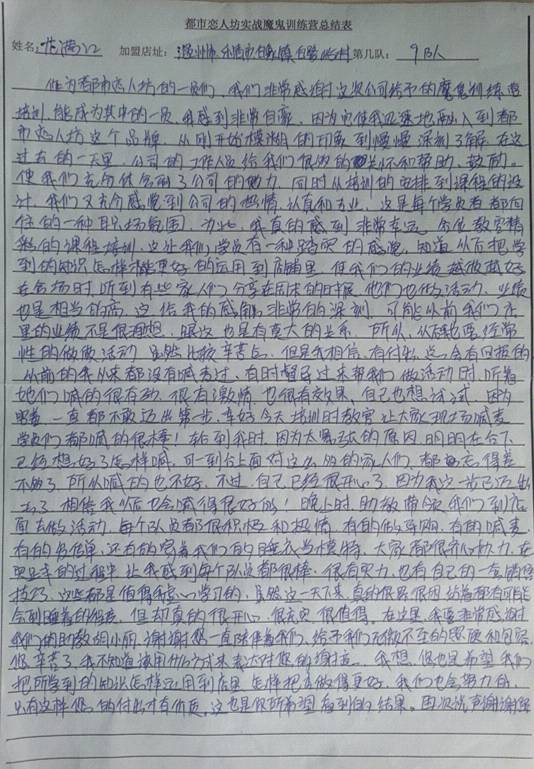 都市恋人坊实战魔鬼训练营总结表
姓名: 加盟店址: 温州市 第几队: 9队
作为都市恋人坊的一员们，我们非常感谢这次公司给予的魔鬼训练营
培训，能成为其中的一员，我感到非常自豪，因为它使我迅速地融入到都
市恋人坊这个品牌，从刚开始模糊的印象到慢慢深刻了解，在这
过去的一天里，公司的工作人员给我们很多的关怀和帮助、鼓励。
使我们充分体会到了公司的魅力，同时从培训的安排到课程的设
计，我们又充分感觉到公司的热情、认真和专业，这是每个学员都向
往的一种职场氛围，为此，我真的感到非常幸运，今天教官精
彩的课程培训，这让我们学员有一种踏实的感觉，知道从后把学
到的知识怎样才能更好的运用到店铺里，使我们的业绩越做越好
在会场时，听到有些家人们分享在周末的时候他们也做活动，业绩
也是相当的高，这给我的感触非常的深刻，可能以前我们店
里的业绩不是很理想，跟这也是有莫大的关系，所以，从后我也要经常
性的做做活动，虽然比较辛苦点，但是我相信，有付出，总会有回报的
从前的我从来都没有喊麦过，有时督导过来帮我们做活动时，听着
她们喊的很有劲，很有激情，也很有效果，自己也想试试，因为
一直都不敢迈出第一步，幸好今天培训时教官让大家现场喊麦
学员们都喊的很棒！轮到我时，因为太紧张的原因，明明在台下
已经想好了怎样喊，可一到台上面对这么多的家人们，都忘得差
不多了，所以喊的也不好，不过自己已经很开心了，因为我这一步已迈出
去了，相信我以后也会喊得很好的！晚上时，助教带领我们到店
面去做活动，每个队员都很积极和热情，有的做导购，有的喊麦
有的发传单，还有的穿着我们的睡衣当模特，大家都很齐心协力，在
的过程中让我感到每个队员都很棒，很有实力，也有自己的一套销售
技巧，这些都是值得我学习的，虽然这一天下来，真的很累很困，站着都有可能
会到睡着的程度，但却真的很开心，很充实，很值得。在这里，我要非常感谢
我们的助教胡小丽，谢谢您一直陪伴着我们，给予我们无微不至的照顾和包容，
您辛苦了，我不知道该用什么方式来表达对您的谢意，我想，您也是希望我们
把所学到的知识怎样运用到店里，怎样把店做得更好，我们也会努力的，
只有这样，您的付出才有价值，这也是您所希望看到的结果。再次说声谢谢您